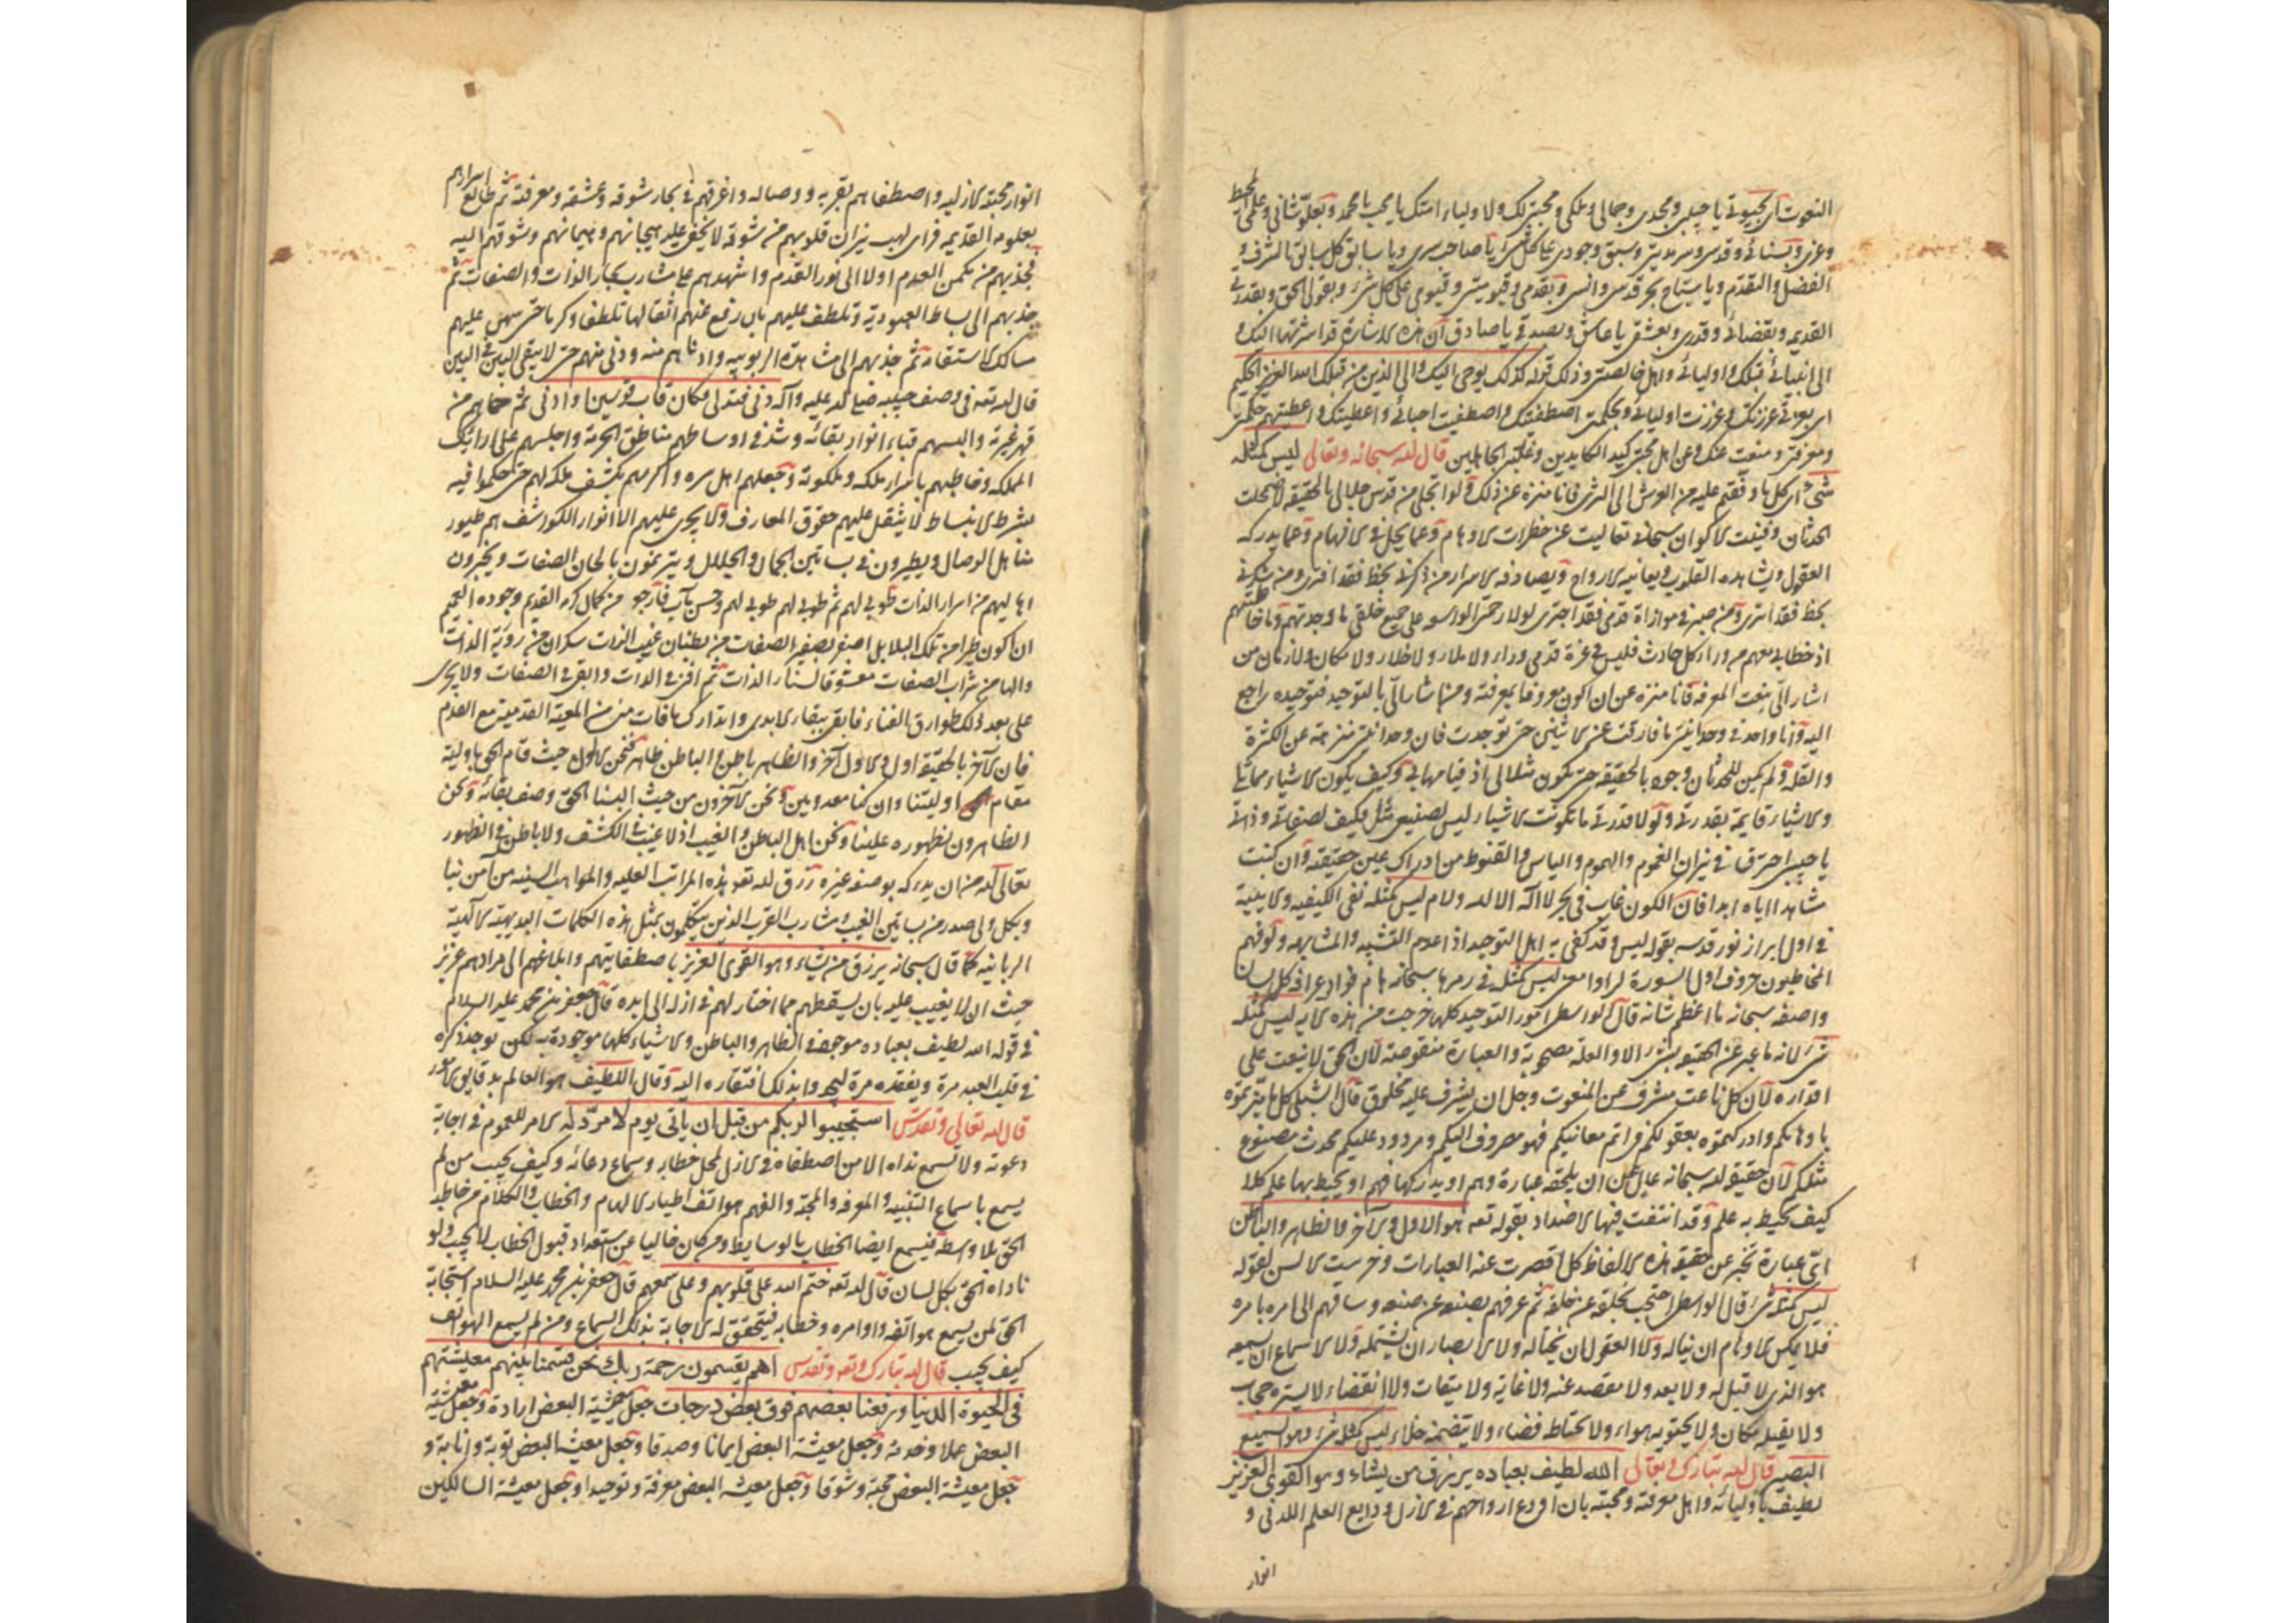 النعوت اى بحيوتى يا حبيبى ومجدى وجمالى وملكى ومحبتى لك ولاولياء امتك يا محب يا محمد وبعلو شانى وعلمى المحيط
وعزى وبسنائى وقدسى وسرمديتى وسبق وجودى على كل شئ يا صاحب سرى ويا سابق كل سابق بالشرف و
الفضل والتقدم ويا سباح بحر قدسى وانسى وبقدمى وقيوميتى وقيومى على كل شئ وبقولى الحق وبقدرتى
القديم وبقضائى وقدرى وبعشقى يا عاشق وبصدقى يا صادق ان هذه الاشارة قد اشرتها اليك و
الى انبيائى قبلك واوليائى واهل خالصتى وذلك قوله كذلك يوحى اليك والى الذين من قبلك الله العزيز الحكيم
اى بعزتى عززتك وعززت اوليائى وبحكمتى اصطفيتك واصطفيت احبائى واعطيتك واعطيتهم حكمتى
ومعرفتى ومنعت عنك وعن اهل محبتى كيد الكايدين وغلبة الجاهلين قال الله سبحانه وتعالى ليس كمثله
شئ اى كل ما وقعتم عليه من العرش الى الثرى فانا منزه عن ذلك ولو اتجلى من قدس جلالى بالحقيقة لاضمحلت
الحدثان وفنيت الاكوان سبحانى تعاليت عن خطرات الاوهام وعما يحل فى الافهام وعما يدركه
العقول ويشاهده القلوب ويعانيه الارواح ويصادفه الاسرار من ذكرنى بحظ فقد افترى ومن شكرنى
بحظ فقد اشرى ومن صبر فى موازاة قدمى فقد اجترى لولا رحمتى الواسعة على جميع خلقى ما وجدتهم وما خاطبتهم
اذ خطابى معهم من وراء كل حادث فليس فى عزة قدمى وراء ولا ملاء ولا خلاء ولا مكان ولا زمان من
اشار الىّ بنعت المعرفة فانا منزه عن ان اكون معروفا بمعرفته ومن اشار الىّ بالتوحيد فتوحيده راجع
اليه وانا واحد فى وحدانيتى ما فارقت عنى الاثنين حتى توحدت فان وحدانيتى منزهة عن الكثرة
والقلة ولم يكن للحدثان وجود بالحقيقة حتى يكون مثلا لى اذ قيامها بى وكيف يكون الاشياء مماثلا
والاشياء قايمة بقدرتى ولولا قدرتى ما تكونت الاشياء ليس لصنيعى مثل فكيف لصفاتى وذاتى
يا حبيبى احترق فى نيران الغموم والهموم والياس والقنوط من ادراك عين حقيقته وان كنت
شاهدا اياه ابدا فان الكون غاب فى بحر لا اله الا الله ولام ليس كمثله نفى الكيفيه والابنية
فى اول ابراز نور قدسه بقوله ليس وقد كفى به اهل التوحيد اذ اعدم التشبيه والمشابهه ولو فهم
المخاطبون حروف اول السورة لراوا معنى ليس كمثله فى رمزها سبحانه هام فؤاد عرافه كل لسان
واصفه سبحانه ما اعظم شانه قال الواسطى امور التوحيد كلها خرجت من هذه الايه ليس كمثله
شئ لانه ما عبر عن الحقيقه بشئ الا والعلة مصحوبة والعبارة منقوصة لان الحق لا ينعت على
اقداره لان كل ناعت مشرف عن المنعوت وجل ان يشرف عليه مخلوق قال الشبلى كل ما ميزتموه
باوهامكم وادركتموه بعقولكم فى اتم معانيكم فهو مصروف اليكم ومردود عليكم محدث مصنوع
مثلكم لان حقيقة الله سبحانه عالى عن ان يلحقه عبارة وهم او يدركها فهم او يحيط بها علم كلا
كيف يحيط به علم وقد انتفت فيها الاضداد بقوله تعه هو الاول والاخر والظاهر والباطن
اى عبارة تخبر عن حقيقة هذه الالفاظ كل قصرت عنه العبارات وخرست الالسن لقوله
ليس كمثله شئ قال الواسطى احتجب بخلقه عن خلقه ثم عرفهم بصنعه عن صنعه وساقهم الى امره بامره
فلا يمكن الاوهام ان يناله ولا العقول ان يختاله ولا الابصار ان يشتمله ولا الاسماع ان يسمعه
هو الذى لا قبل له ولا بعد ولا مقصد عنه ولا غاية ولا ميقات ولا انقضاء لا يستره حجاب
ولا يقيله مكان ولا يحتويه هواء ولا يحتاط فضاء ولا يتضمنه خلاء ليس كمثله شئ وهو السميع
البصير قال الله تبارك وتعالى الله لطيف بعباده يرزق من يشاء وهو القوى العزيز
لطيف باوليائه واهل معرفته ومحبته بان اودع ارواحهم فى الازل ودايع العلم اللدنى و
انوار
انوار محبته الازليه واصطفاهم بقربه ووصاله واغرقهم فى بحار شوقه وعشقه ومعرفته ثم طالع اسرارهم
بعلومه القديمه فراى لهيب نيران قلوبهم من شوقه لا يخفى عليه هيجانهم وهيمانهم وشوقهم اليه
فجذبهم من مكمن العدم اولا الى نور القدم واشهدهم على مشارب بحار الذات والصفات ثم
جذبهم الى بساط العبودية وتلطف عليهم بان رفع عنهم اثقالها تلطفا وكرما حتى سهل عليهم
مسالك الاستقامة ثم جذبهم الى مشاهدة الربوبيه وادناهم منه ودنى منهم حتى لا يبقى البين فى البين
قال الله تعه فى وصف حبيبه صلى الله عليه وآله دنى فتدلى فكان قاب قوسين او ادنى ثم حماهم من
قهر غيرته والبسهم قباء انوار بقائه وشد فى اوساطهم مناطق الحرمة واجلسهم على ارائك
المملكه وخاطبهم باسرار ملكه وملكوته وجعلهم اهل سره واكرمهم بكشف ملكه لهم حتى حكموا فيه
بشرط الانبساط لا يثقل عليهم حقوق المعارف ولا يجرى عليهم الا انوار الكواشف هم طيور
مناهل الوصال ويطيرون فى بساتين الجمال والجلال ويترنمون بالحان الصفات ويخبرون
اهاليهم من اسرار الذات طوبى لهم ثم طوبى لهم طوبى لهم وحسن مآب فارجو من كمال كرمه القديم وجوده العميم
ان اكون طيرا من تلك البلابل اصفر بصفير الصفات من بطنان غيب الذات سكران من رؤية الذات
والها من شراب الصفات معشوقا لسناء الذات ثم افنى فى الذات وابقى فى الصفات ولا يجرى
على بعد ذلك طوارق الفناء فابقى ببقاء الابدى واتدارك ما فات منى من المعية القدمية مع القدم
فان الاخر بالحقيقة اول والاول آخر والظاهر باطن والباطن ظاهر فنحن الاول حيث قام الحق باوليته
مقام اوليتنا وان كنا معدومين ونحن الاخرون من حيث البسنا الحق وصف بقائه ونحن
الظاهرون بظهوره علينا ونحن اهل الباطن والغيب اذ لا غيب فى الكشف ولا باطن فى الظهور
تعالى الله من ان يدركه بوصفه غيره رزق الله تعه هذه المراتب العليه والمواهب السنيه من آمن بنا
وبكل ولى صدر من بساتين الغيب ومشارب القرب الذين يتكلمون بمثل هذه الكلمات البديهية الالهية
الربانيه كما قال سبحانه يرزق من يشاء وهو القوى العزيز باصطفايتهم وابلاغهم الى مرادهم عزيز
حيث ان لا يغيب عليه بان يسقطهم مما اختار لهم فى ازله الى ابده قال جعفر بن محمد عليه السلام
فى قوله الله لطيف بعباده موجود فى الظاهر والباطن والاشياء كلها موجودة به لكن يوجد ذكره
فى قلب العبد مرة ويفقده مرة ليجدوا بذلك افتقاره اليه وقال اللطيف هو العالم بدقايق الامور
قال الله تعالى وتقدس استجيبوا لربكم من قبل ان ياتى يوم لا مرد له الامر للعموم فى اجابة
دعوته ولا يسمع نداه الا من اصطفاه فى الازل لمحل خطابه وسماع دعائه وكيف يجيب من لم
يسمع باسماع التنبيه والمعرفه والمحبة والفهم هواتف اطيار الالهام والخطاب والكلام من خاطبه
الحق بلا واسطة فيسمع ايضا الخطاب بالوسايط ومن كان خاليا عن استعداد قبول الخطاب لا يجيب ولو
ناداه الحق بكل لسان قال الله تعه ختم الله على قلوبهم وعلى سمعهم قال جعفر بن محمد عليه السلام استجابة
الحق لمن يسمع هواتفه واوامره وخطابه فيتحقق له الاجابة بذلك السماع ومن لم يسمع الهواتف
كيف يجيب قال الله تبارك وتعه وتقدس اهم يقسمون رحمة ربك نحن قسمنا بينهم معيشتهم
فى الحيوة الدنيا ورفعنا بعضهم فوق بعض درجات جعل معيشة البعض ارادة وجعل معيشة
البعض عملا وخدمة وجعل معيشة البعض ايمانا وصدقا وجعل معيشة البعض توبة وانابة و
جعل معيشة البعض محبة وشوقا وجعل معيشة البعض معرفة وتوحيدا وجعل معيشة السالكين